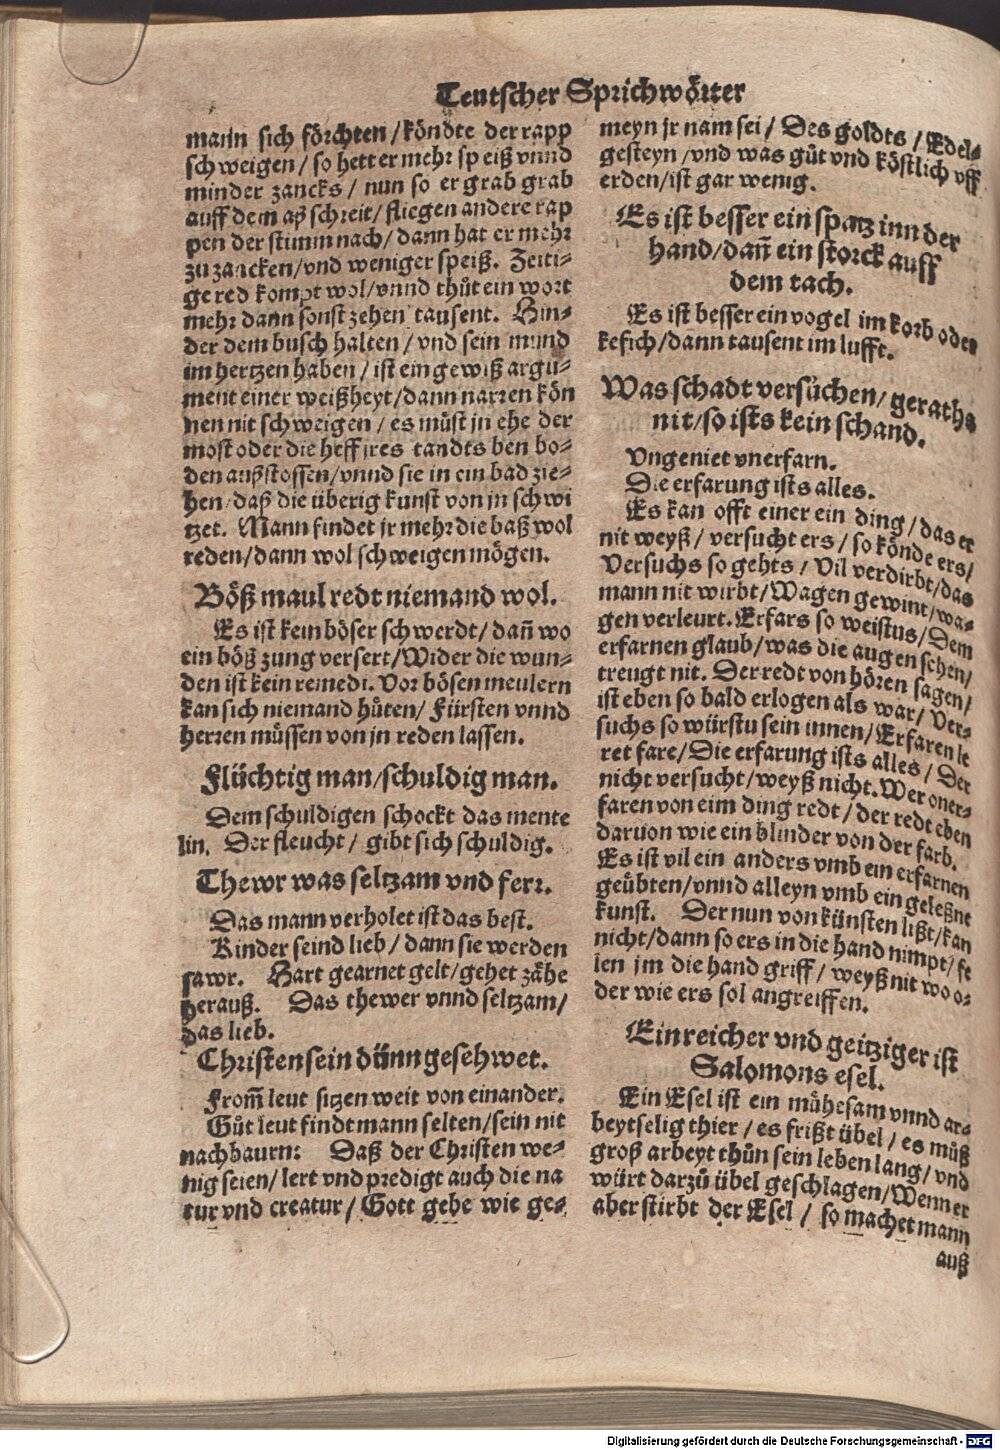 Teutscher Sprichwörter
mann sich förchten / köndte der rapp
schweigen / so hett er mehr speiß vnnd
minder zancks / nun so er grab grab
auff dem aß schreit / fliegen andere rap
pen der stimm nach / dann hat er mehr
zuzancken / vnd weniger speiß. Zeiti-
ge red kompt wol / vnnd thůt ein wort
mehr dann sonst zehen tausent. Hin-
der dem busch halten / vnd sein mund
im hertzen haben / ist ein gewiß argu-
ment einer weißheyt / dann narren kön
nen nit schweigen / es můst jn ehe der
most oder die heff jres tandts den bo-
den außstossen / vnnd sie in ein bad zie-
hen / daß die überig kunst von jn schwi
tzet. Mann findet jr mehr die baß wol
reden / dann wol schweigen mögen.
Böß maul redt niemand wol.
Es ist kein böser schwerdt / dañ wo
ein böß zung versert / Wider die wun-
den ist kein remedi. Vor bösen meulern
kan sich niemand hůten / Fürsten vnnd
herren müssen von jn reden lassen.
Flüchtig man / schuldig man.
Dem schuldigen schockt das mente
lin. Der fleucht / gibt sich schuldig.
Thewr was seltzam vnd ferr.
Das mann verholet ist das best.
Kinder seind lieb / dann sie werden
sawr. Hart gearnet gelt / gehet zähe
herauß. Das thewer vnnd seltzam /
das lieb.
Christen sein dünn gesehwet.
From̃ leut sitzen weit von einander.
Gůt leut findt mann selten / sein nit
nachbaurn: Daß der Christen we-
nig seien / lert vnd predigt auch die na
tur vnd creatur / Gott gebe wie ge-
meyn jr nam sei / Des goldts / Edel-
gesteyn / vnd was gůt vnd köstlich vff
erden / ist gar wenig.
Es ist besser ein spatz inn der
hand / dañ ein storck auff
dem tach.
Es ist besser ein vogel im korb oder
kefich / dann tausent im lufft.
Was schadt versůchen / geraths
nit / so ists kein schand.
Vngeniet vnerfarn.
Die erfarung ists alles.
Es kan offt einer ein ding / das er
nit weyß / versucht ers / so könde ers /
Versuchs so gehts / Vil verdirbt / das
mann nit wirbt / Wagen gewint / wa-
gen verleurt. Erfars so weistus / Dem
erfarnen glaub / was die augen sehen /
treugt nit. Der redt von hören sagen /
ist eben so bald erlogen als war / Ver-
suchs so würstu sein innen / Erfaren le
ret fare / Die erfarung ists alles / Der
nicht versucht / weyß nicht. Wer oner-
faren von eim ding redt / der redt eben
daruon wie ein blinder von der farb.
Es ist vil ein anders vmb ein erfarnen
geübten / vnnd alleyn vmb ein geleßne
kunst. Der nun von künsten lißt / kan
nicht / dann so ers in die hand nimpt / fe
len jm die hand griff / weyß nit wo o-
der wie ers sol angreiffen.
Ein reicher vnd geitziger ist
Salomons esel.
Ein Esel ist ein můhesam vnnd ar-
beytselig thier / es frißt übel / es můß
groß arbeyt thůn sein leben lang / vnd
würt darzů übel geschlagen / Wenn er
aber stirbt der Esel / so machet mann
auß
Digitalisierung gefördert durch die Deutsche Forschungsgemeinschaft - DFG